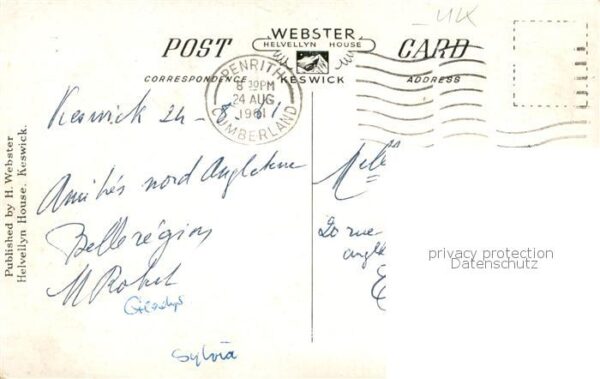 UK
WEBSTER
HELVELLYN HOUSE
KESWICK
POST CARD
CORRESPONDENCE
ADDRESS
PENRITH
8 30PM
24 AUG
1961
CUMBERLAND
Keswick 24-8-61
Amitiés nord Angleterre
Belle région
M Robel
Gladys
Sylvia
20 rue
privacy protection
Datenschutz
Published by H. Webster
Helvellyn House. Keswick.